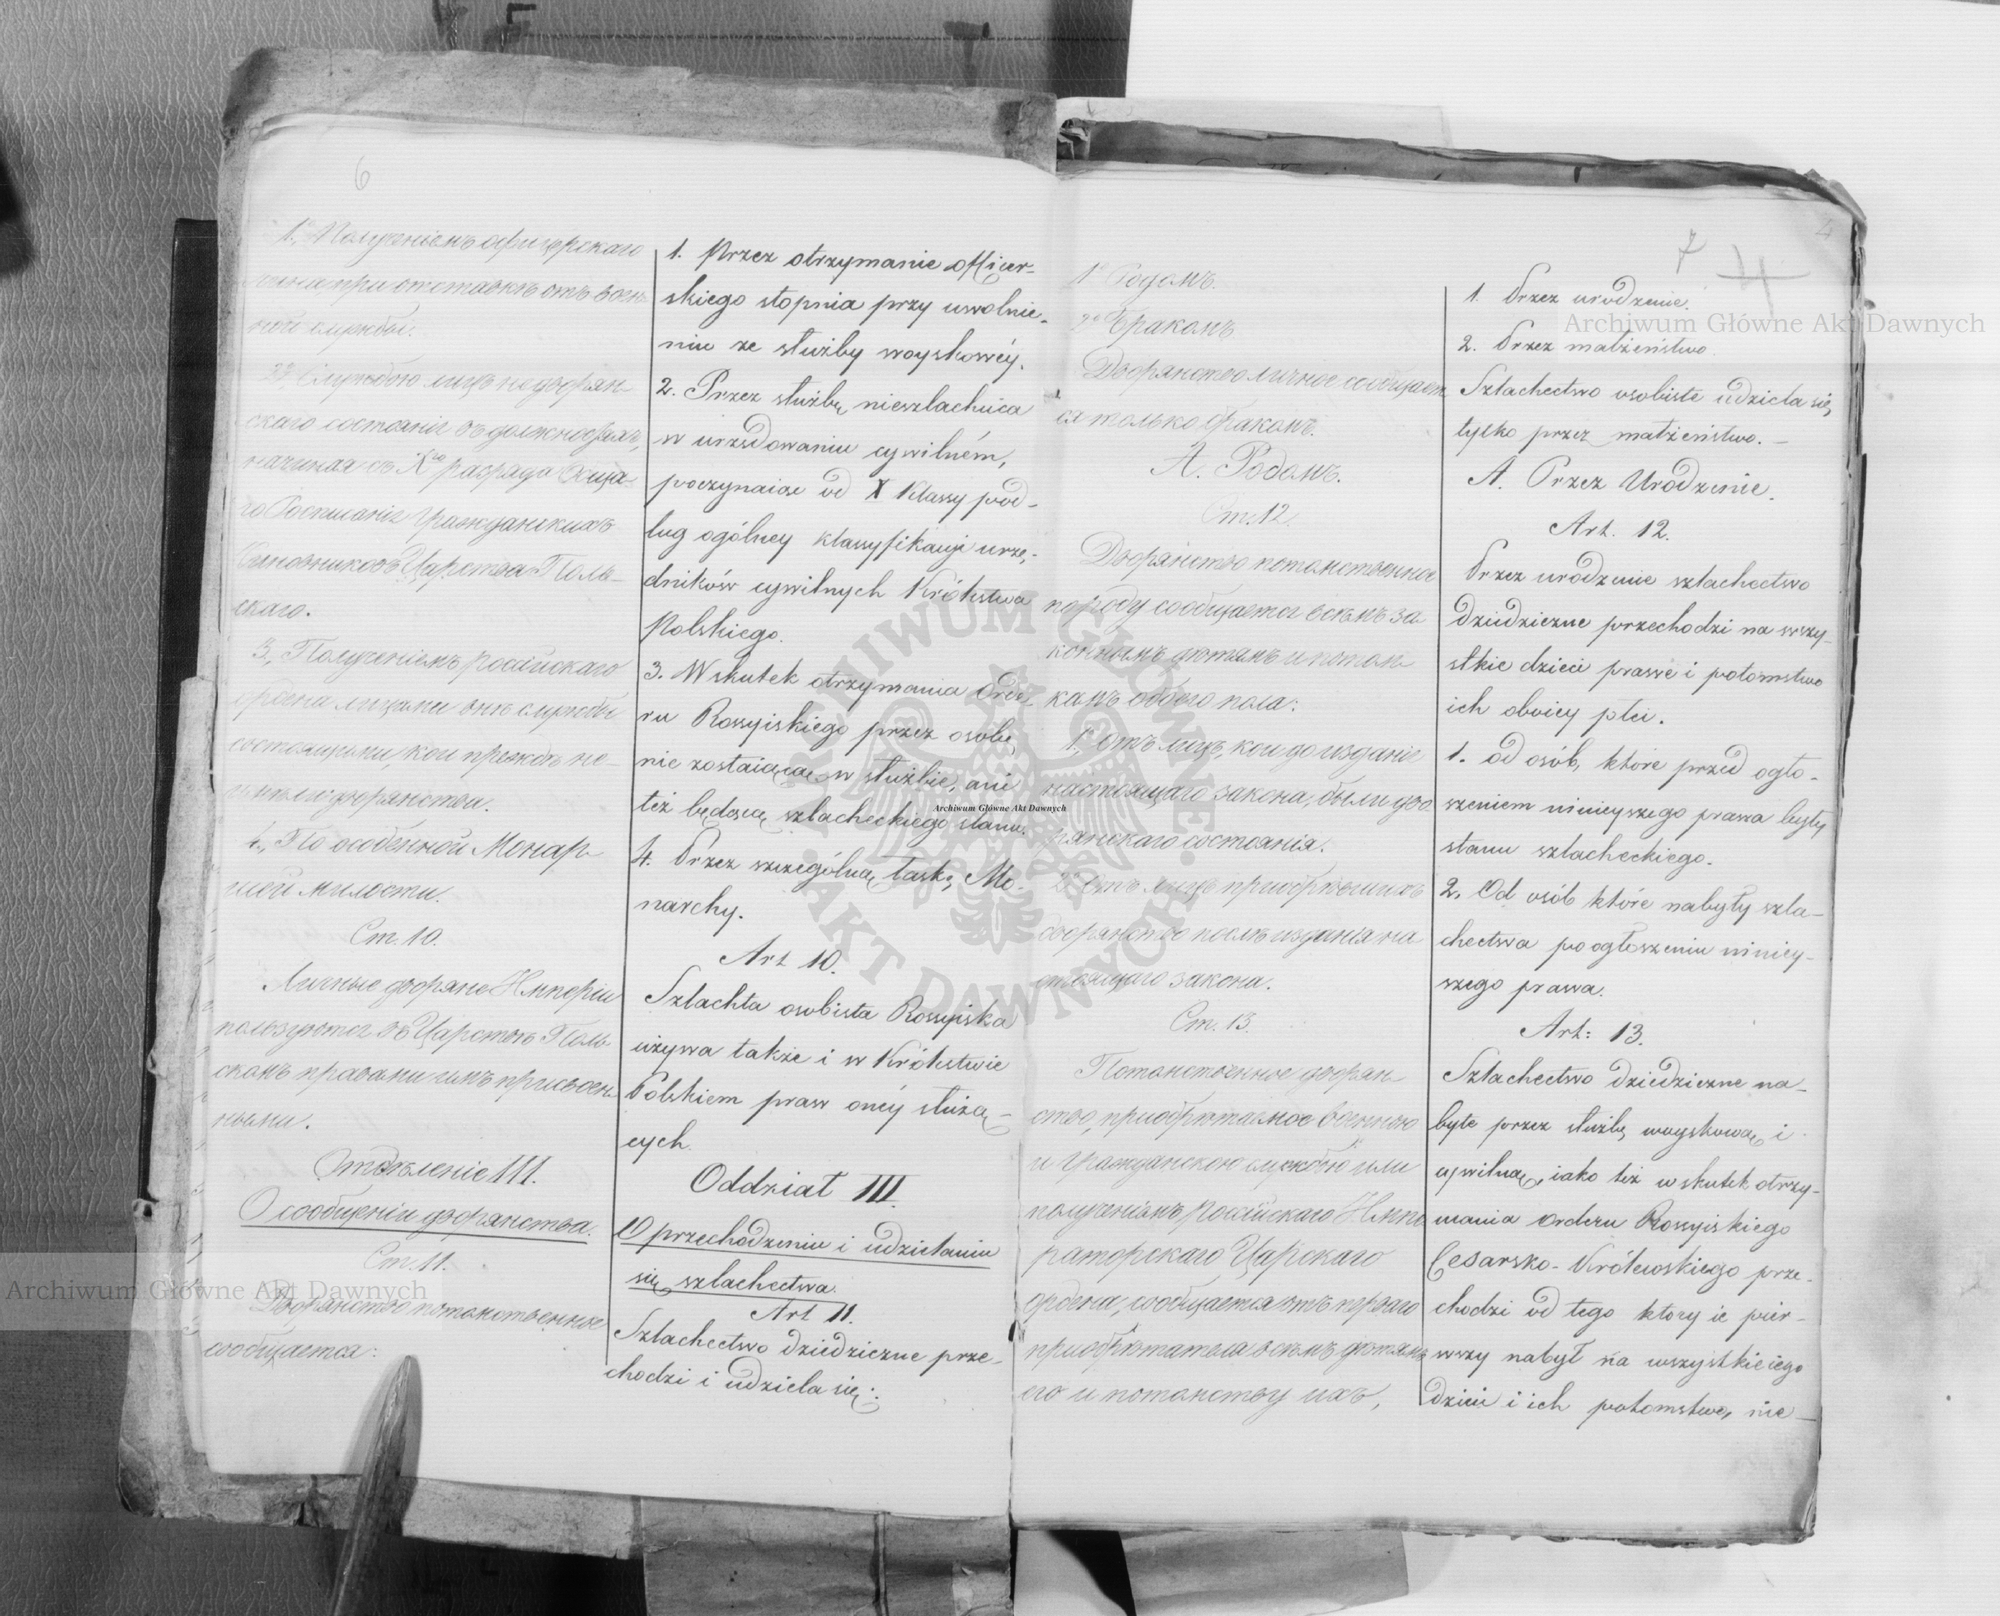 6
1., Полученіемъ офицерскаго
чина при отставкѣ отъ воен-
ной службы.
2., Службою лицъ не дворян-
скаго состоянія въ должностяхъ,
начиная съ X го разряда Обща-
го Росписанія Гражданскихъ
Чиновниковъ Царства Поль-
скаго.
3., Полученіемъ россійскаго
ордена лицами внѣ службы
состоящими, кои прежде не
имѣли дворянства.
4., По особенной Монар-
шей милости.
Ст. 10.
Личные дворяне Имперіи
пользуются въ Царствѣ Поль-
скомъ правами имъ присвоен-
ными.
Отдѣленіе III.
О сообщеніи дворянства.
Ст. 11.
Дворянство потомственное
сообщается:
1. Przez otrzymanie officer-
skiego stopnia przy uwolnie-
niu ze służby woyskowéy.
2. Przez służbę nieszlachcica
w urzędowaniu cywilném,
poczynaiąc od X Klassy pod-
ług ogólney klassyfikacyi urzę-
dników cywilnych Królestwa
Polskiego.
3. Wskutek otrzymania Orde-
ru Rossyiskiego przez osobę,
nie zostaiącą w służbie, ani
też będącą szlacheckiego stanu.
4. Przez szczególną łaskę Mo-
narchy.
Art 10.
Szlachta osobista Rossyiska
używa także i w Królestwie
Polskiem praw onéy służą-
cych.
Oddział III.
O przechodzeniu i udzielaniu
się szlachectwa.
Art 11.
Szlachectwo dziedziczne prze-
chodzi i udziela się:
7 4
4
1е Родомъ.
2е Бракомъ
Дворянство личное сообщает-
ся только бракомъ.
А. Родомъ.
Ст. 12.
Дворянство потомственное
по роду сообщается всѣмъ за
коннымъ дѣтямъ и потом
камъ обоего пола:
1., отъ лицъ, кои до изданія
настоящаго закона, были дво
рянскаго состоянія.
2е Отъ лицъ пріобрѣвшихъ
дворянство послѣ изданія на
стоящаго закона.
Ст. 13.
Потомственное дворян
ство, пріобрѣтаемое военною
и гражданскою службою или
полученіемъ Россійскаго Импе
раторскаго Царскаго
ордена, сообщается отъ перваго
пріобрѣтателя всѣмъ дѣтямъ
его и потомству ихъ,
1. Przez urodzenie.
2. Przez małżeństwo.
Szlachectwo osobiste udziela się,
tylko przez małżeństwo.
A. Przez Urodzenie.
Art. 12.
Przez urodzenie szlachectwo
dziedziczne przechodzi na wszy-
stkie dzieci prawe i potomstwo
ich oboiey płci.
1. od osób, które przed ogło-
szeniem ninieyszego prawa były
stanu szlacheckiego.
2. Od osób które nabyły szla-
chectwa po ogłoszeniu niniey-
szego prawa.
Art: 13.
Szlachectwo dziedziczne na-
byte przez służbę woyskową i
cywilną, iako też wskutek otrzy-
mania orderu Rossyiskiego
Cesarsko-Królewskiego prze-
chodzi od tego który ie pier-
wszy nabył na wszystkie iego
dzieci i ich potomstwo, nie-
Archiwum Główne Akt Dawnych
Archiwum Główne Akt Dawnych
Archiwum Główne Akt Dawnych
ARCHIWUM GŁÓWNE
AKT DAWNYCH